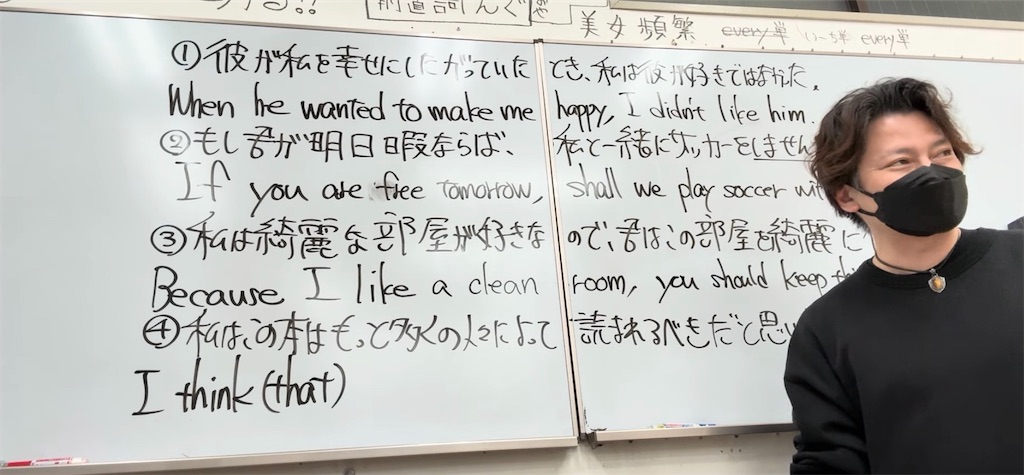 !!
美女頻繁 every単 いーち単 every単
①彼が私を幸せにしたがっていたとき、私は彼が好きではなかった。
When he wanted to make me happy, I didn't like him.
②もし君が明日暇ならば、私と一緒にサッカーをしません
If you are free tomorrow, shall we play soccer
③私は綺麗な部屋が好きなので、君はこの部屋を綺麗に
Because I like a clean room, you should keep
④私は、この本はもっと多くの人々によって読まれるべきだと思い
I think (that)